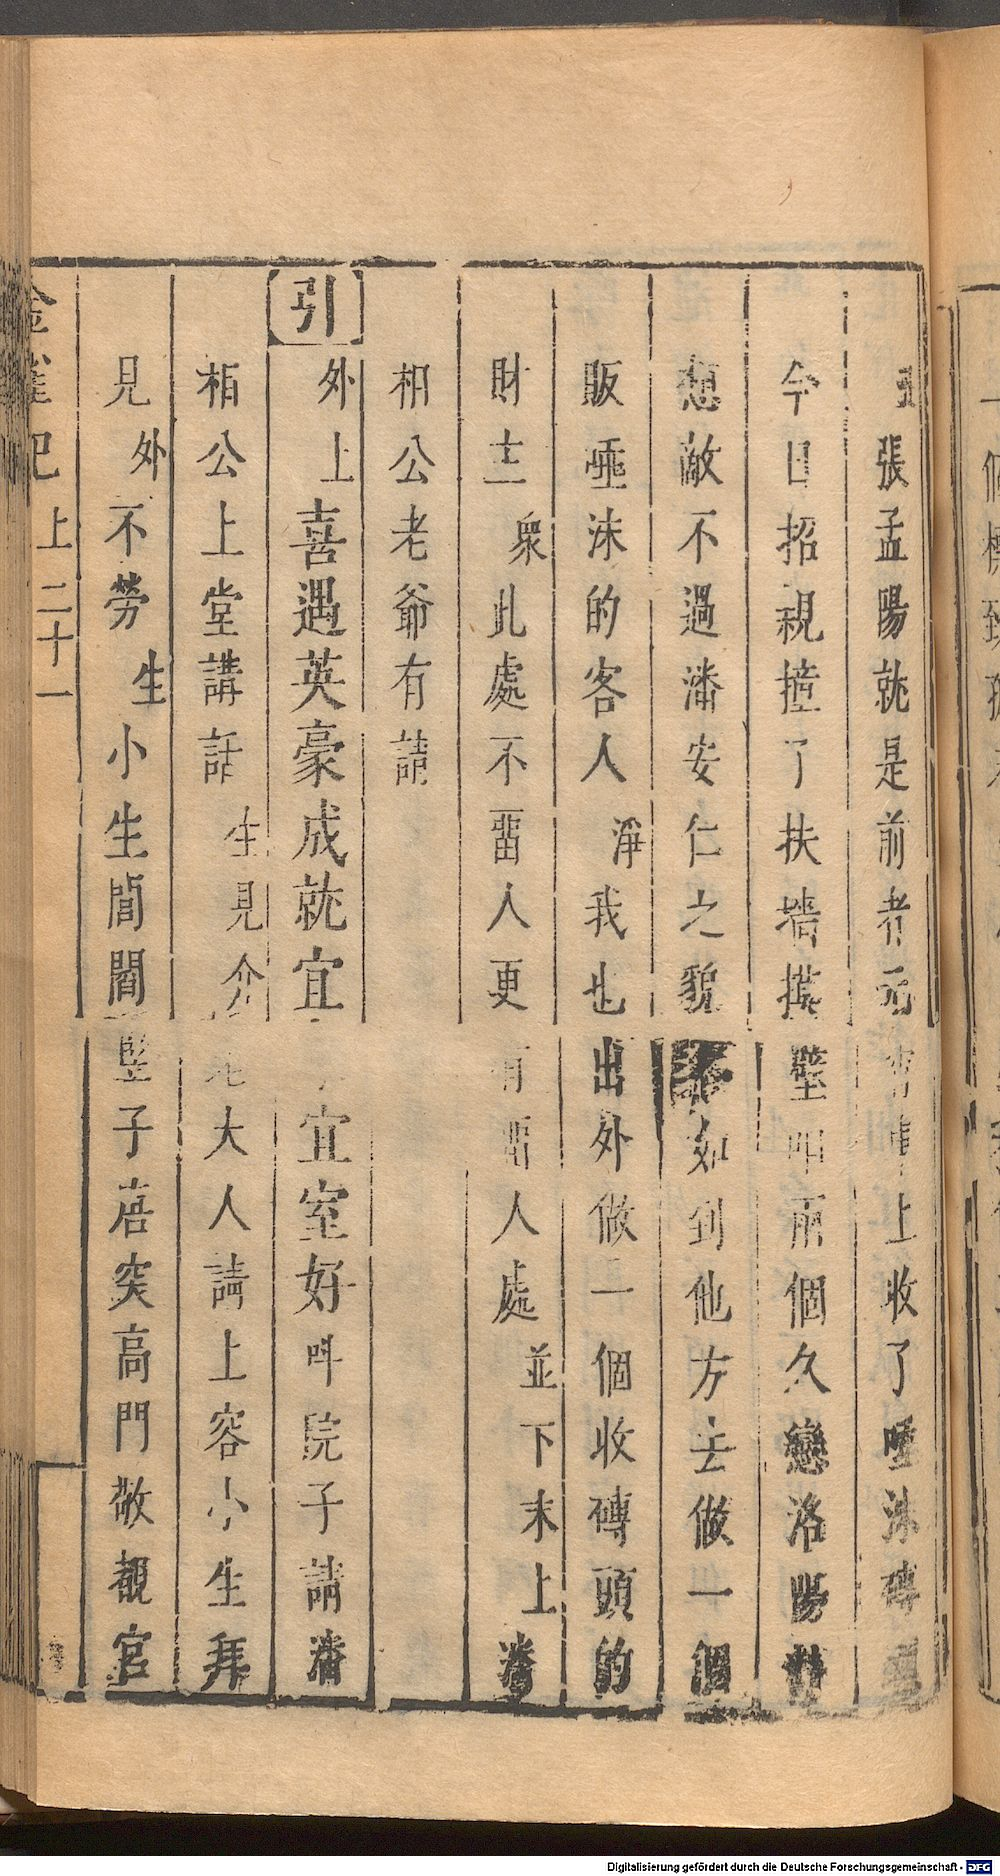 張孟陽就是前者元宵車上收了唾沫磚
今日招親撞了扶墻摸壁叫兩個久戀洛陽
想敵不過潘安仁之貌不如到他方去做一個
販唾沫的客人淨我也出外做一個收磚頭的
財主衆此處不畱人更有畱人處並下末上潘
相公老爺有請
引外上喜遇英豪成就宜宜室好呌院子請潘
相公上堂講話生見介老大人請上容小生拜
見外不勞生小生閭閻豎子唐突高門敬覩宮
金雀記上二十一
Digitalisierung gefördert durch die Deutsche Forschungsgemeinschaft - DFG